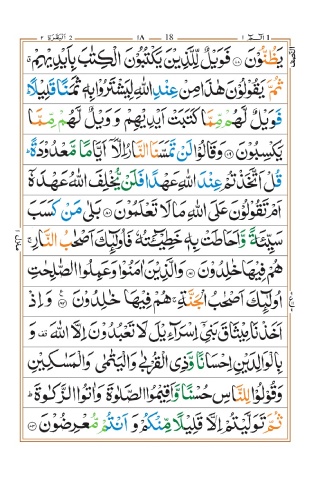 يَظُنُّوْنَ ۝ فَوَيْلٌ لِّلَّذِيْنَ يَكْتُبُوْنَ الْكِتٰبَ بِاَيْدِيْهِمْ
ثُمَّ يَقُوْلُوْنَ هٰذَا مِنْ عِنْدِ اللّٰهِ لِيَشْتَرُوْا بِهٖ ثَمَنًا قَلِيْلًا
فَوَيْلٌ لَّهُمْ مِّمَّا كَتَبَتْ اَيْدِيْهِمْ وَ وَيْلٌ لَّهُمْ مِّمَّا
يَكْسِبُوْنَ ۝ وَقَالُوْا لَنْ تَمَسَّنَا النَّارُ اِلَّاۤ اَيَّامًا مَّعْدُوْدَةً
قُلْ اَتَّخَذْتُمْ عِنْدَ اللّٰهِ عَهْدًا فَلَنْ يُّخْلِفَ اللّٰهُ عَهْدَهٗۤ
اَمْ تَقُوْلُوْنَ عَلَى اللّٰهِ مَا لَا تَعْلَمُوْنَ ۝ بَلٰى مَنْ كَسَبَ
سَيِّئَةً وَّاَحَاطَتْ بِهٖ خَطِيْٓئَتُهٗ فَاُولٰٓئِكَ اَصْحٰبُ النَّارِ
هُمْ فِيْهَا خٰلِدُوْنَ ۝ وَالَّذِيْنَ اٰمَنُوْا وَعَمِلُوا الصّٰلِحٰتِ
اُولٰٓئِكَ اَصْحٰبُ الْجَنَّةِ هُمْ فِيْهَا خٰلِدُوْنَ ۝ وَاِذْ
اَخَذْنَا مِيْثَاقَ بَنِيْۤ اِسْرَآءِيْلَ لَا تَعْبُدُوْنَ اِلَّا اللّٰهَ وَ
بِالْوَالِدَيْنِ اِحْسَانًا وَّذِي الْقُرْبٰى وَالْيَتٰمٰى وَالْمَسٰكِيْنِ
وَقُوْلُوْا لِلنَّاسِ حُسْنًا وَّاَقِيْمُوا الصَّلٰوةَ وَاٰتُوا الزَّكٰوةَ
ثُمَّ تَوَلَّيْتُمْ اِلَّا قَلِيْلًا مِّنْكُمْ وَ اَنْتُمْ مُّعْرِضُوْنَ ۝